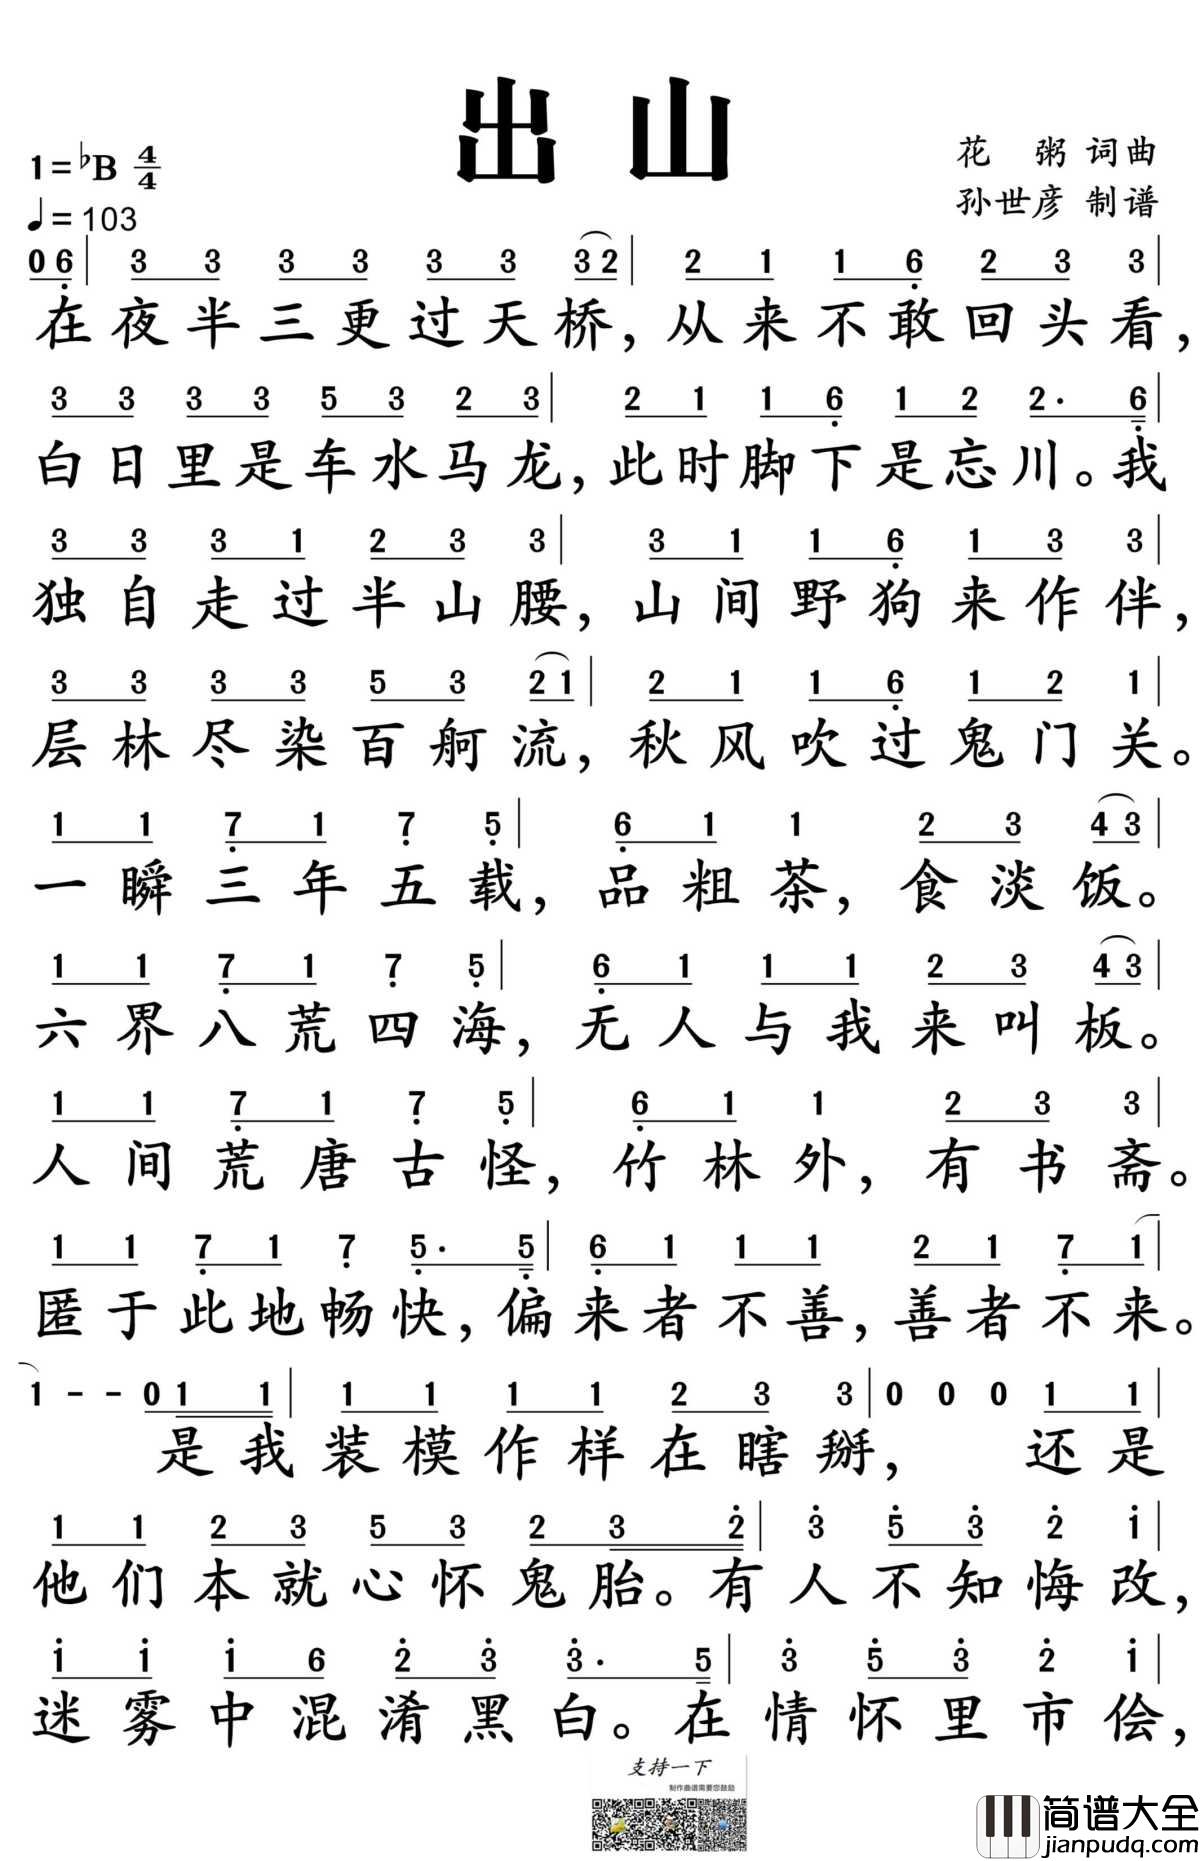 出山
1=♭B 4/4
♩=103
花 粥 词曲
孙世彦 制谱
0 6 | 3 3 3 3 3 3 3 2 | 2 1 1 6 2 3 3 |
在夜半三更过天桥,从来不敢回头看,
3 3 3 3 5 3 2 3 | 2 1 1 6 1 2 2· 6 |
白日里是车水马龙,此时脚下是忘川。我
3 3 3 1 2 3 3 | 3 1 1 6 1 3 3 |
独自走过半山腰,山间野狗来作伴,
3 3 3 3 5 3 2 1 | 2 1 1 6 1 2 1 |
层林尽染百舸流,秋风吹过鬼门关。
1 1 7 1 7 5 | 6 1 1 2 3 4 3 |
一瞬三年五载,品粗茶,食淡饭。
1 1 7 1 7 5 | 6 1 1 1 2 3 4 3 |
六界八荒四海,无人与我来叫板。
1 1 7 1 7 5 | 6 1 1 2 3 3 |
人间荒唐古怪,竹林外,有书斋。
1 1 7 1 7 5· 5 | 6 1 1 1 2 1 7 1 |
匿于此地畅快,偏来者不善,善者不来。
1 - - 0 1 1 | 1 1 1 1 2 3 3 | 0 0 0 1 1 |
是我装模作样在瞎掰,还是
1 1 2 3 5 3 2 3 2 | 3 5 3 2 1 |
他们本就心怀鬼胎。有人不知悔改,
1 1 1 6 2 3 3· 5 | 3 5 3 2 1 |
迷雾中混淆黑白。在情怀里市侩,
支持一下
制作曲谱需要您鼓励
简谱大全
jianpudq.com